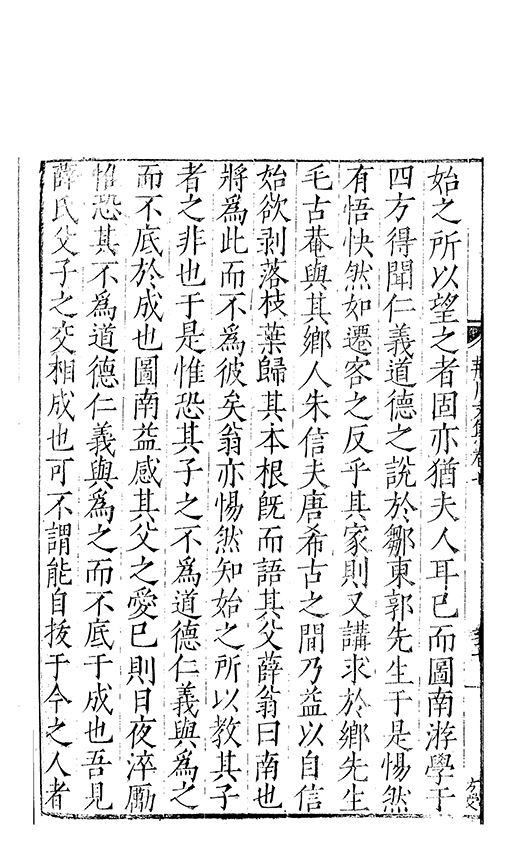 始之所以望之者固亦猶夫人耳已而圖南游學于
四方得聞仁義道德之說於鄒東郭先生于是惕然
有悟怏然如遷客之反乎其家則又講求於鄉先生
毛古菴與其鄉人朱信夫唐希古之間乃益以自信
始欲剥落枝葉歸其本根既而語其父薛翁曰南也
將爲此而不爲彼矣翁亦惕然知始之所以教其子
者之非也于是惟恐其子之不爲道德仁義與爲之
而不底於成也圖南益感其父之愛已則日夜淬厲
惟恐其不爲道德仁義與爲之而不底于成也吾見
薛氏父子之交相成也可不謂能自拔于今之人者